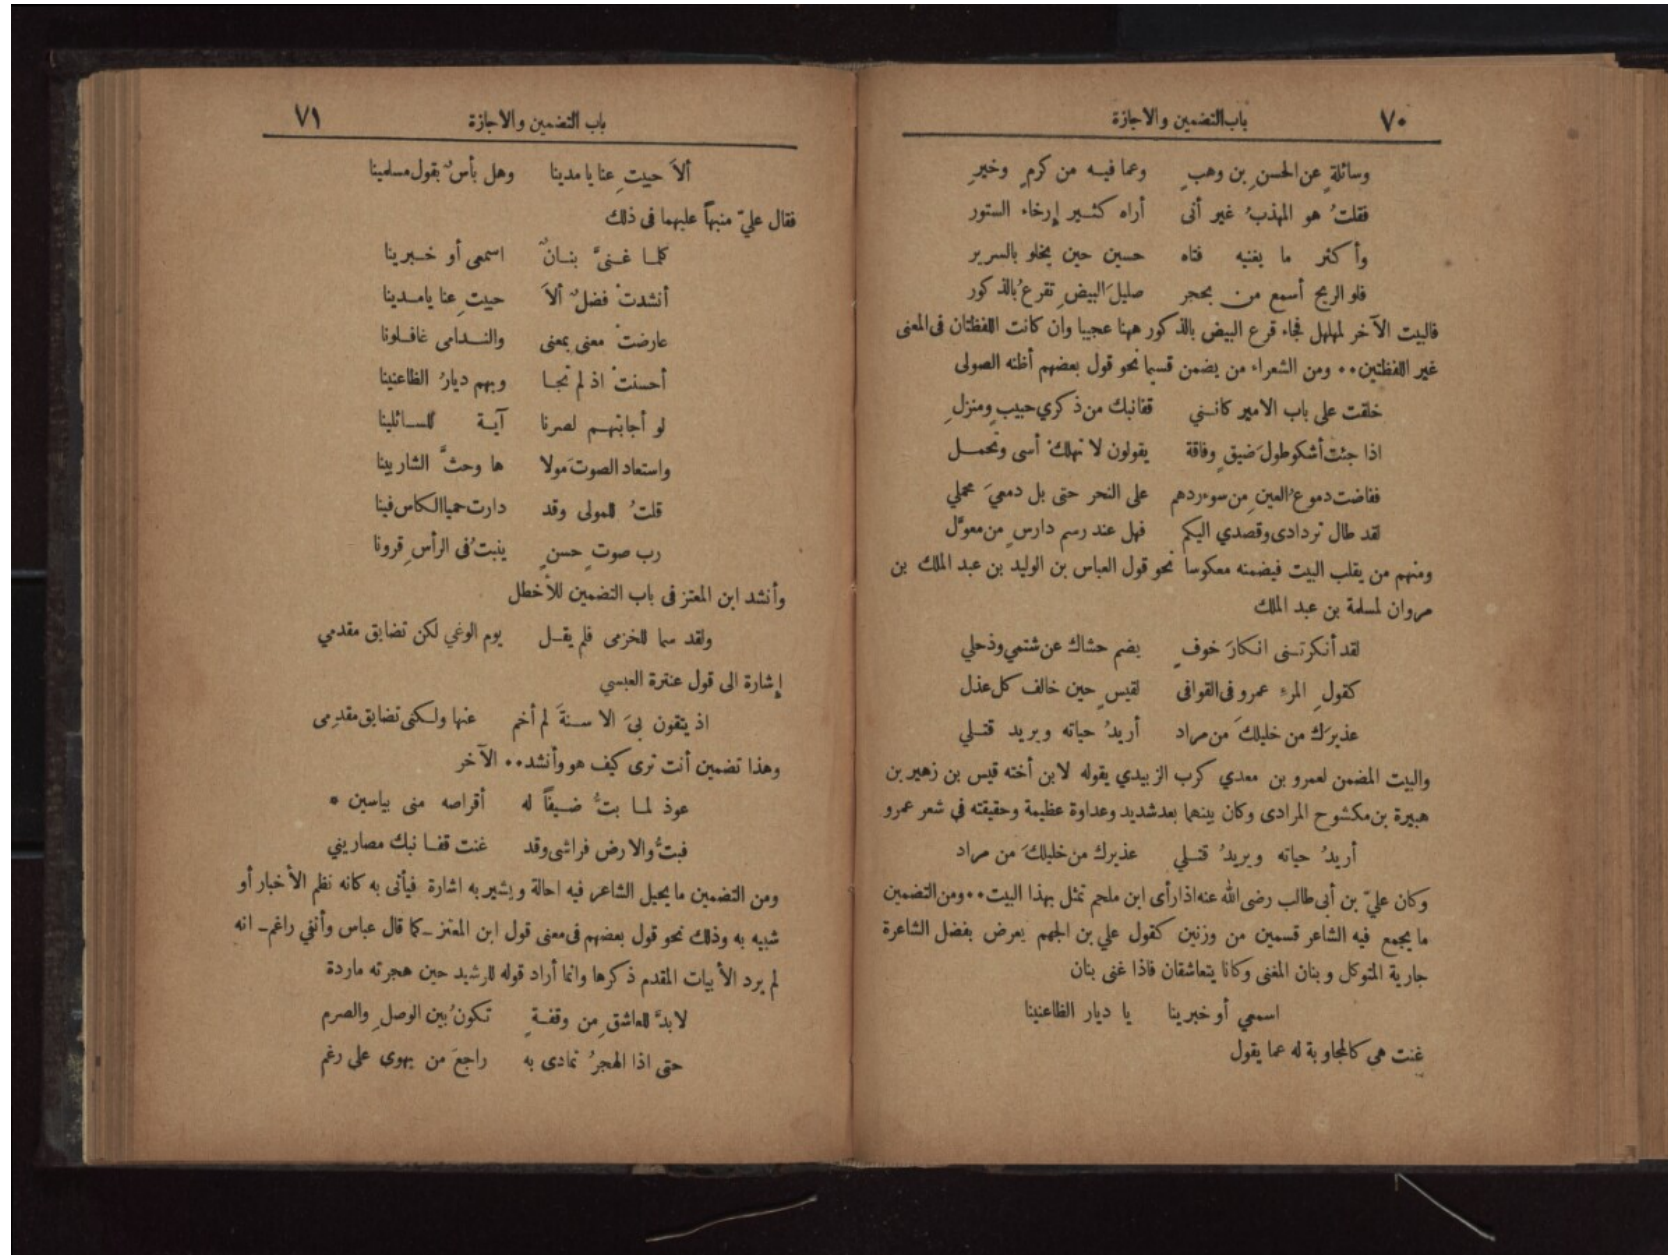 ٧٠
باب التضمين والاجازة
وسائلةٍ عن الحسنِ بن وهبٍ وعما فيــه من كرمٍ وخيرِ
فقلتُ هو المهذبُ غير أنى أراه كثــير إرخاء الستور
وأكثر ما يغنيه فتاه حسين حين يخلو بالسرير
فلو الريح أسمع من بحجر صليلَ البيضِ تقرعُ بالذكور
فالبيت الآخر لمهلهل فجاء قرع البيض بالذكور ههنا عجيبا وان كانت اللفظتان فى المعنى
غير اللفظتين٠٠ ومن الشعراء من يضمن قسيما نحو قول بعضهم أظنه الصولى
خلقت على باب الامير كانــني قفانبك من ذكري حبيبٍ ومنزلِ
اذا جئت أشكو طولَ ضيقٍ وفاقة يقولون لا تهلكْ أسى وتحمــل
ففاضت دموعُ العين من سوءردهم على النحر حتى بل دمعيَ محملي
لقد طال تردادى وقصدي اليكم فهل عند رسم دارسٍ من معوَّل
ومنهم من يقلب البيت فيضمنه معكوسا نحو قول العباس بن الوليد بن عبد الملك بن
مروان لمسلمة بن عبد الملك
لقد أنكرتــنى انكارَ خوفٍ يضم حشاك عن شتمي وذحلي
كقولِ المرءِ عمرو فى القوافى لقيسٍ حين خالف كل عذل
عذيرَك من خليلكَ من مراد أريدُ حياته ويريد قتــلي
والبيت المضمن لعمرو بن معدي كرب الزبيدي يقوله لابن أخته قيس بن زهير بن
هبيرة بن مكشوح المرادى وكان بينهما بعد شديد وعداوة عظيمة وحقيقته في شعر عمرو
أريدُ حياته ويريدُ قتــلي عذيرك من خليلكَ من مراد
وكان عليّ بن أبى طالب رضى الله عنه اذا رأى ابن ملجم تمثل بهذا البيت٠٠ ومن التضمين
ما يجمع فيه الشاعر قسمين من وزنين كقول علي بن الجهم يعرض بفضل الشاعرة
جارية المتوكل وبنان المغنى وكانا يتعاشقان فاذا غنى بنان
اسمعي أو خبرينا يا ديار الظاعنينا
غنت هي كالمجاوبة له عما يقول
٧١
باب التضمين والاجازة
ألاَ حيتِ عنا يا مدينا وهل بأسٌ بقول مسلمينا
فقال عليّ منبهاً عليهما فى ذلك
كلمــا غــنىَّ بنــانٌ اسمعى أو خــبرينا
أنشدتْ فضلٌ ألاَ حيتِ عنا يا مــدينا
عارضتْ معنى بمعنى والنــدامى غافــلونا
أحسنتْ اذ لم تجبـا وبهم ديارُ الظاعنينا
لو أجابتهــم لصرنا آيــة للســائلينا
واستعاد الصوتَ مولا ها وحثَّ الشاربينا
قلتُ للمولى وقد دارت حميا الكاس فينا
رب صوتٍ حسنٍ ينبتُ فى الرأسِ قرونا
وأنشد ابن المعتز فى باب التضمين للأخطل
ولقد سما للخزمى فلم يقــل يوم الوغي لكن تضايق مقدمي
إشارة الى قول عنترة العبسي
اذ يتقون بىَ الاســنةَ لم أخم عنها ولكنى تضايق مقدِمى
وهذا تضمين أنت ترى كيف هو وأنشد٠٠ الآخر
عوذ لمــا بتُّ ضــيفاً له أقراصه منى بياسين *
فبتُّ والارض فراشى وقد غنت قفــا نبك مصاريني
ومن التضمين ما يحيل الشاعر فيه احالة ويشير به اشارة فيأتى به كانه نظم الأخبار أو
شبيه به وذلك نحو قول بعضهم فى معنى قول ابن المعتز ــ كما قال عباس وأنفي راغم ــ انه
لم يرد الأبيات المقدم ذكرها وانما أراد قوله للرشيد حين هجرته ماردة
لابدَّ للعاشقِ من وقفــةٍ تكونُ بين الوصلِ والصرم
حتى اذا الهجرُ تمادى به راجعَ من يهوى على رغم